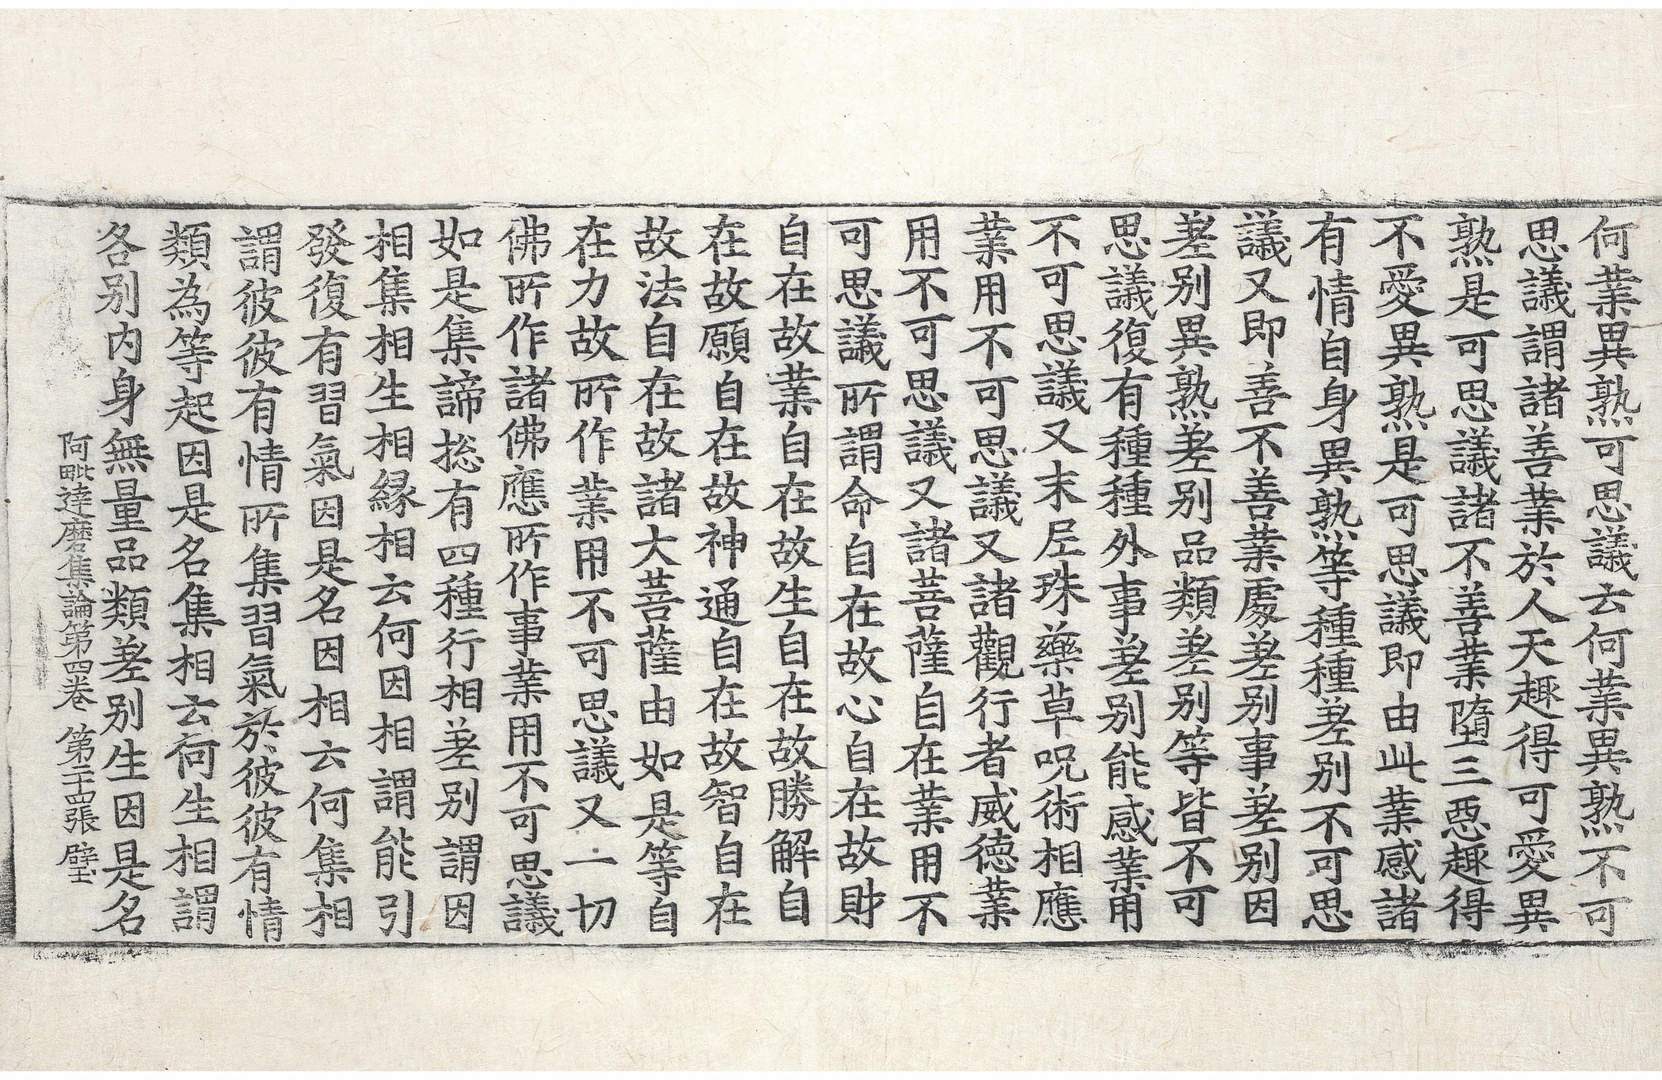 何業異熟可思議云何業異熟不可
思議謂諸善業於人天趣得可愛異
熟是可思議諸不善業墮三惡趣得
不愛異熟是可思議即由此業感諸
有情自身異熟等種種差別不可思
議又即善不善業處差別事差別因
差別異熟差別品類差別等皆不可
思議復有種種外事差別能感業用
不可思議又末尼珠藥草呪術相應
業用不可思議又諸觀行者威德業
用不可思議又諸菩薩自在業用不
可思議所謂命自在故心自在故財
自在故業自在故生自在故勝解自
在故願自在故神通自在故智自在
故法自在故諸大菩薩由如是等自
在力故所作業用不可思議又一切
佛所作諸佛應所作事業用不可思議
如是集諦揔有四種行相差別謂因
相集相生相緣相云何因相謂能引
發復有習氣因是名因相云何集相
謂彼彼有情所集習氣於彼彼有情
類為等起因是名集相云何生相謂
各別內身無量品類差別生因是名
阿毗達磨集論第四卷 第二十四張 壁